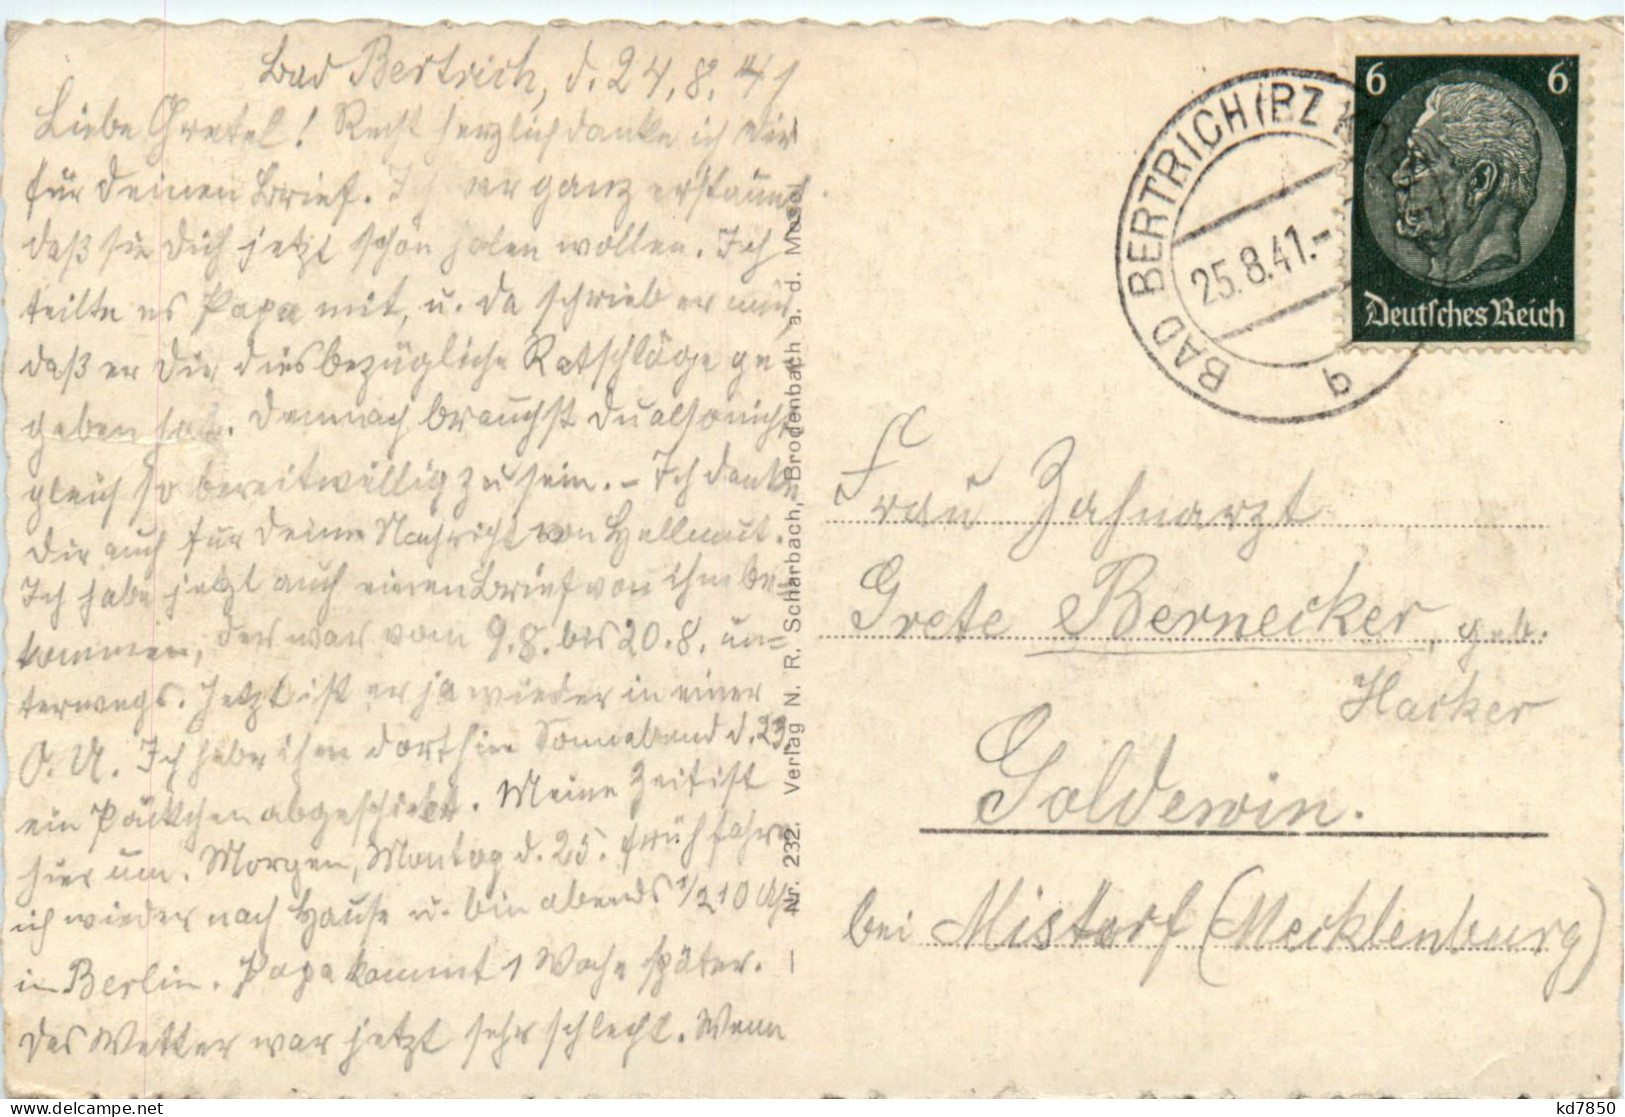 Bad Bertrich, d. 24.8.41
Liebe Gretel! Recht herzlich danke ich dir
für deinen Brief. Ich war ganz erstaunt
daß sie dich jetzt schon holen wollen. Ich
teilte es Papa mit, u. da schrieb er mir,
daß er dir diesbezügliche Ratschläge ge-
geben hat. Demnach brauchst du also nicht
gleich so bereitwillig zu sein. - Ich danke
dir auch für deine Nachricht von Hellmut.
Ich habe jetzt auch einen Brief von ihm be-
kommen, der war vom 9.8. bis 20.8. un=
terwegs. Jetzt ist er ja wieder in einer
O.U. Ich habe ihm dorthin Sonnabend d. 23.
ein Päckchen abgeschickt. Meine Zeit ist
hier um. Morgen, Montag d. 25. früh fahre
ich wieder nach Hause u. bin abends 1/2 10 Uhr
in Berlin. Papa kommt 1 Woche später.
Das Wetter war jetzt sehr schlecht. Wenn
— Nr. 232. Verlag N. R. Scharbach, Brodenbach a. d. Mosel
BAD BERTRICH (BZ
25.8.41.-
q
6 6
Deutsches Reich
Frau Zahnarzt
Grete Bernecker, geb.
Hacker
Goldewin.
bei Mistorf (Mecklenburg)
kd7850